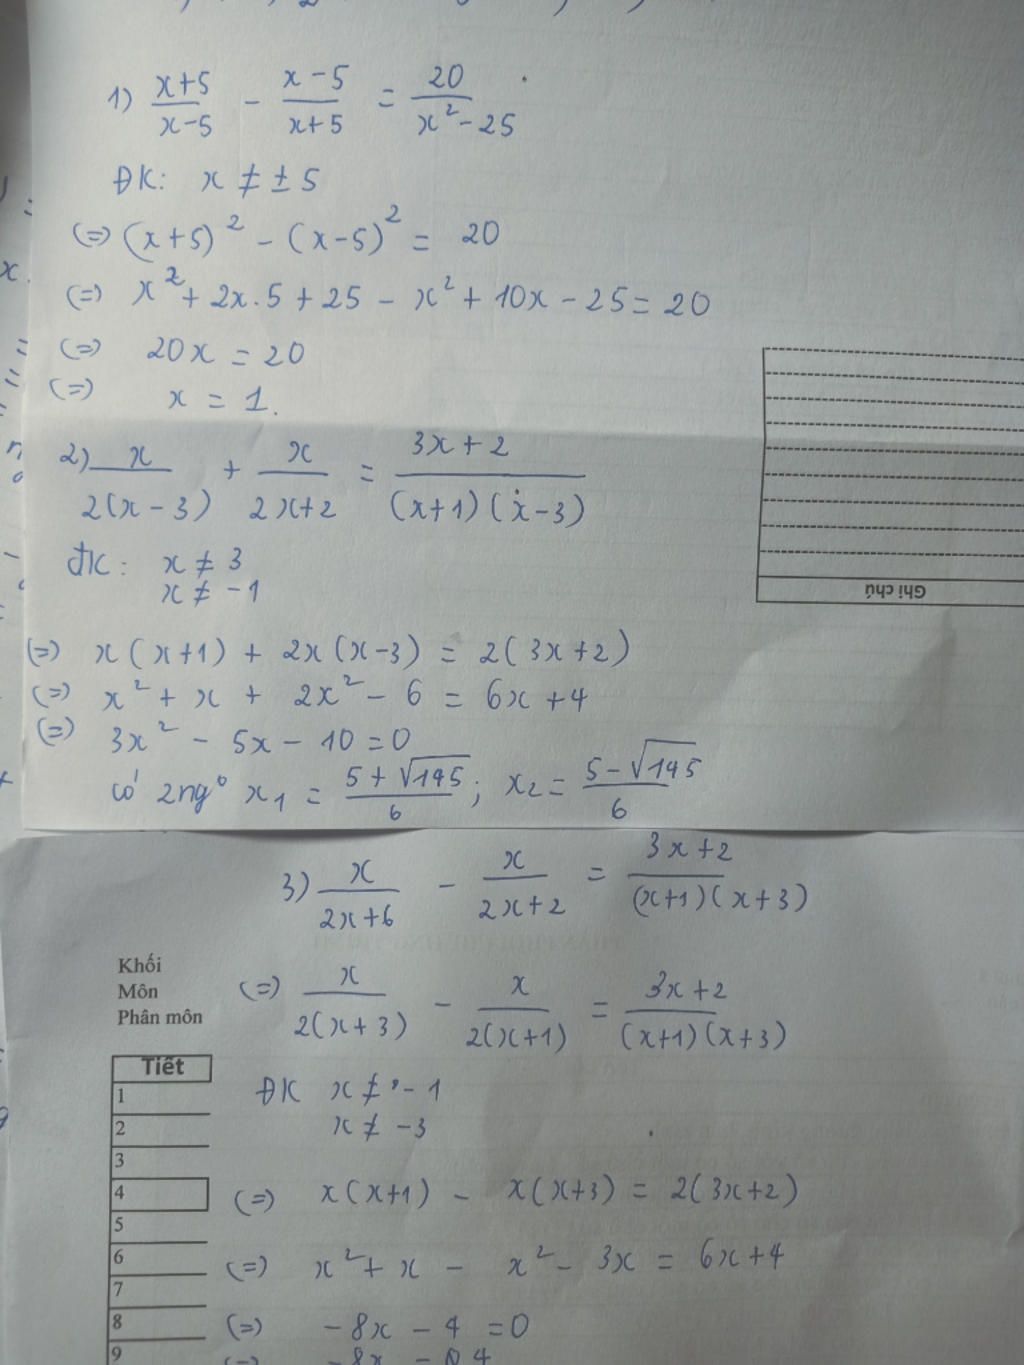 1) (x+5)/(x-5) - (x-5)/(x+5) = 20/(x² - 25)
ĐK: x ≠ ± 5
(=) (x+5)² - (x-5)² = 20
(=) x² + 2x.5 + 25 - x² + 10x - 25 = 20
(=) 20x = 20
(=) x = 1.
2) x/(2(x-3)) + x/(2x+2) = (3x+2)/((x+1)(x-3))
ĐK: x ≠ 3
x ≠ -1
Ghi chú
(=) x(x+1) + 2x(x-3) = 2(3x+2)
(=) x² + x + 2x² - 6 = 6x + 4
(=) 3x² - 5x - 10 = 0
có 2 ng° x₁ = (5 + √145)/6 ; x₂ = (5 - √145)/6
3) x/(2x+6) - x/(2x+2) = (3x+2)/((x+1)(x+3))
Khối
Môn
Phân môn
(=) x/(2(x+3)) - x/(2(x+1)) = (3x+2)/((x+1)(x+3))
Tiết
1
2
3
4
5
6
7
8
9
ĐK x ≠ -1
x ≠ -3
(=) x(x+1) - x(x+3) = 2(3x+2)
(=) x² + x - x² - 3x = 6x + 4
(=) -8x - 4 = 0